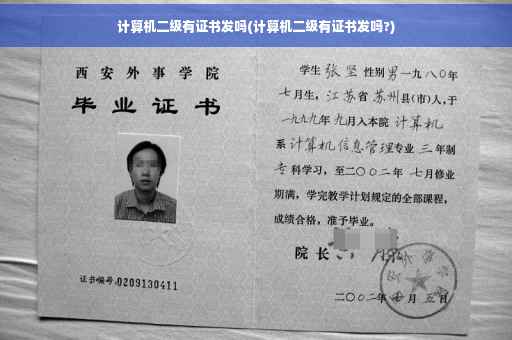 计算机二级有证书发吗(计算机二级有证书发吗?)
西安外事学院
毕业证书
证书编号:0209130411
学生 张坚 性别 男 一九八〇年
七月生,江苏省 苏州县(市)人,于
一九九九年 九月入本院 计算机
系 计算机信息管理专业 三 年制
专科学习,至二〇〇二年 七月修业
期满,学完教学计划规定的全部课程,
成绩合格,准予毕业。
院长
二〇〇二年 月 五日